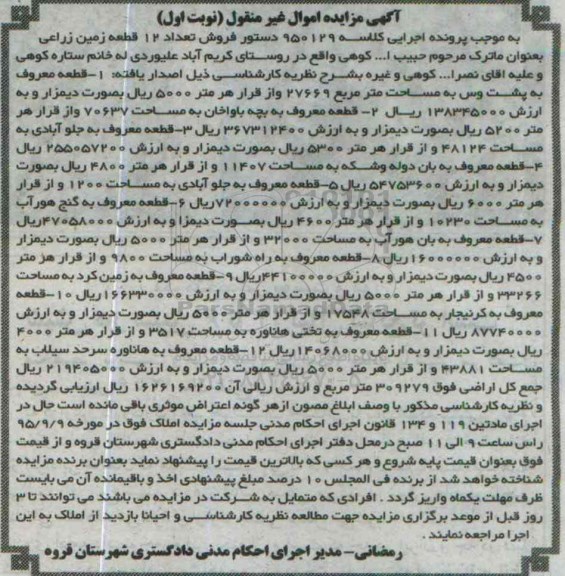 آگهی مزایده اموال غیر منقول (نوبت اول)
به موجب پرونده اجرایی کلاسه ۹۵۰۱۲۹ دستور فروش تعداد ۱۲ قطعه زمین زراعی
بعنوان ماترک مرحوم حبیب ا... کوهی واقع در روستای کریم آباد علیوردی له خانم ستاره کوهی
و علیه اقای نصرا... کوهی و غیره بشرح نظریه کارشناسی ذیل اصدار یافته: ۱-قطعه معروف
به پشت وس به مساحت متر مربع ۲۷۶۶۹ از قرار هر متر ۵۰۰۰ ریال بصورت دیمزار و به
ارزش ۱۳۸۳۴۵۰۰۰ ریال ۲- قطعه معروف به بچه باواخان به مساحت ۷۰۶۳۷ از قرار هر
متر ۵۲۰۰ ریال بصورت دیمزار و به ارزش ۳۶۷۳۱۲۴۰۰ ریال ۳-قطعه معروف به جلو آبادی به
مساحت ۴۸۱۲۴ و از قرار هر متر ۵۳۰۰ ریال بصورت دیمزار و به ارزش ۲۵۵۰۵۷۲۰۰ ریال
۴-قطعه معروف به بان دوله وشکه به مساحت ۱۱۴۰۷ و از قرار هر متر ۴۸۰۰ ریال بصورت
دیمزار و به ارزش ۵۴۷۵۳۶۰۰ ریال ۵-قطعه معروف به جلو آبادی به مساحت ۱۲۰۰ و از قرار
هر متر ۶۰۰۰ ریال بصورت دیمزار و به ارزش ۷۲۰۰۰۰۰ریال ۶-قطعه معروف به گنج هورآب
به مساحت ۱۰۲۳۰ و از قرار هر متر ۴۶۰۰ ریال بصورت دیمزا و به ارزش ۴۷۰۵۸۰۰۰ریال
۷-قطعه معروف به بان هور آب به مساحت ۳۲۰۰۰ و از قرار هر متر ۵۰۰۰ ریال بصورت دیمزار
و به ارزش ۱۶۰۰۰۰۰۰۰ریال ۸-قطعه معروف به راه شوراب به مساحت ۹۸۰۰ و از قرار هر متر
۴۵۰۰ ریال بصورت دیمزار و به ارزش ۴۴۱۰۰۰۰۰ریال ۹-قطعه معروف به زمین کرد به مساحت
۳۳۲۶۶ و از قرار هر متر ۵۰۰۰ ریال بصورت دیمزار و به ارزش ۱۶۶۳۳۰۰۰۰ریال ۱۰-قطعه
معروف به کرنیجار به مساحت ۱۷۵۴۸ و از قرار هر متر ۵۰۰۰ ریال بصورت دیمزار و به ارزش
۸۷۷۴۰۰۰۰ ریال ۱۱-قطعه معروف به تختی هاناوره به مساحت ۳۵۱۷ و از قرار هر متر ۴۰۰۰
ریال بصورت دیمزار و به ارزش ۱۴۰۶۸۰۰۰ریال ۱۲-قطعه معروف به هاناوره سرحد سیلاب به
مساحت ۴۳۸۸۱ و از قرار هر متر ۵۰۰۰ ریال بصورت دیمزار و به ارزش ۲۱۹۴۰۵۰۰۰ ریال
جمع کل اراضی فوق ۳۰۹۲۷۹ متر مربع و ارزش ریالی آن ۱۶۲۶۱۶۹۲۰۰ ریال ارزیابی گردیده
و نظریه کارشناسی مذکور با وصف ابلاغ مصون ازهر گونه اعتراض موثری باقی مانده است حال در
اجرای مادتین ۱۱۹ و ۱۳۴ قانون اجرای احکام مدنی جلسه مزایده املاک فوق در مورخه ۹۵/۹/۹
راس ساعت ۹ الی ۱۱ صبح درمحل دفتر اجرای احکام مدنی دادگستری شهرستان قروه و از قیمت
فوق بعنوان قیمت پایه شروع و هر کسی که بالاترین قیمت را پیشنهاد نماید بعنوان برنده مزایده
شناخته خواهد شد از برنده فی المجلس ۱۰ درصد مبلغ پیشنهادی اخذ و باقیمانده آن می بایست
ظرف مهلت یکماه واریز گردد . افرادی که متمایل به شرکت در مزایده می باشند می توانند تا ۳
روز قبل از موعد برگزاری مزایده جهت مطالعه نظریه کارشناسی و احیانا بازدید از املاک به این
اجرا مراجعه نمایند .
رمضانی- مدیر اجرای احکام مدنی دادگستری شهرستان قروه